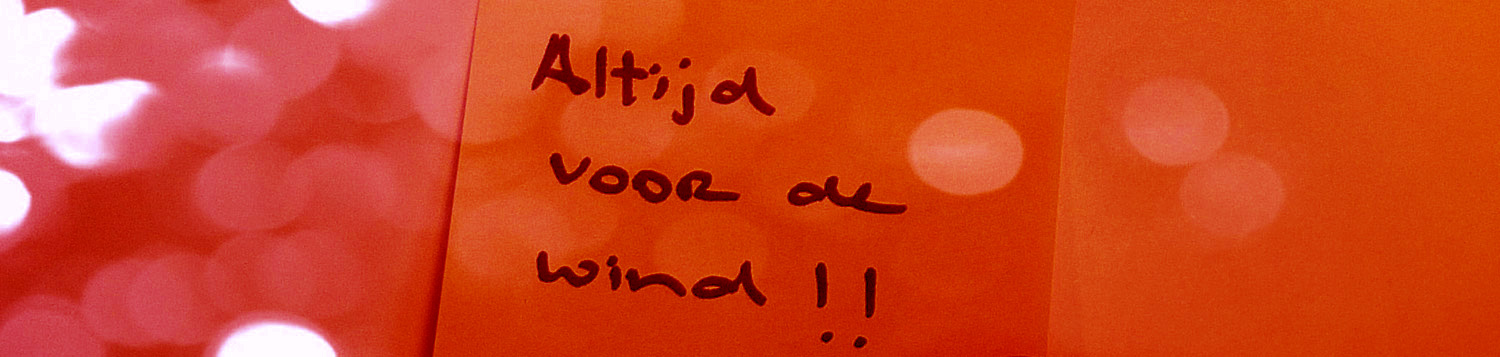 Altijd
voor de
wind !!